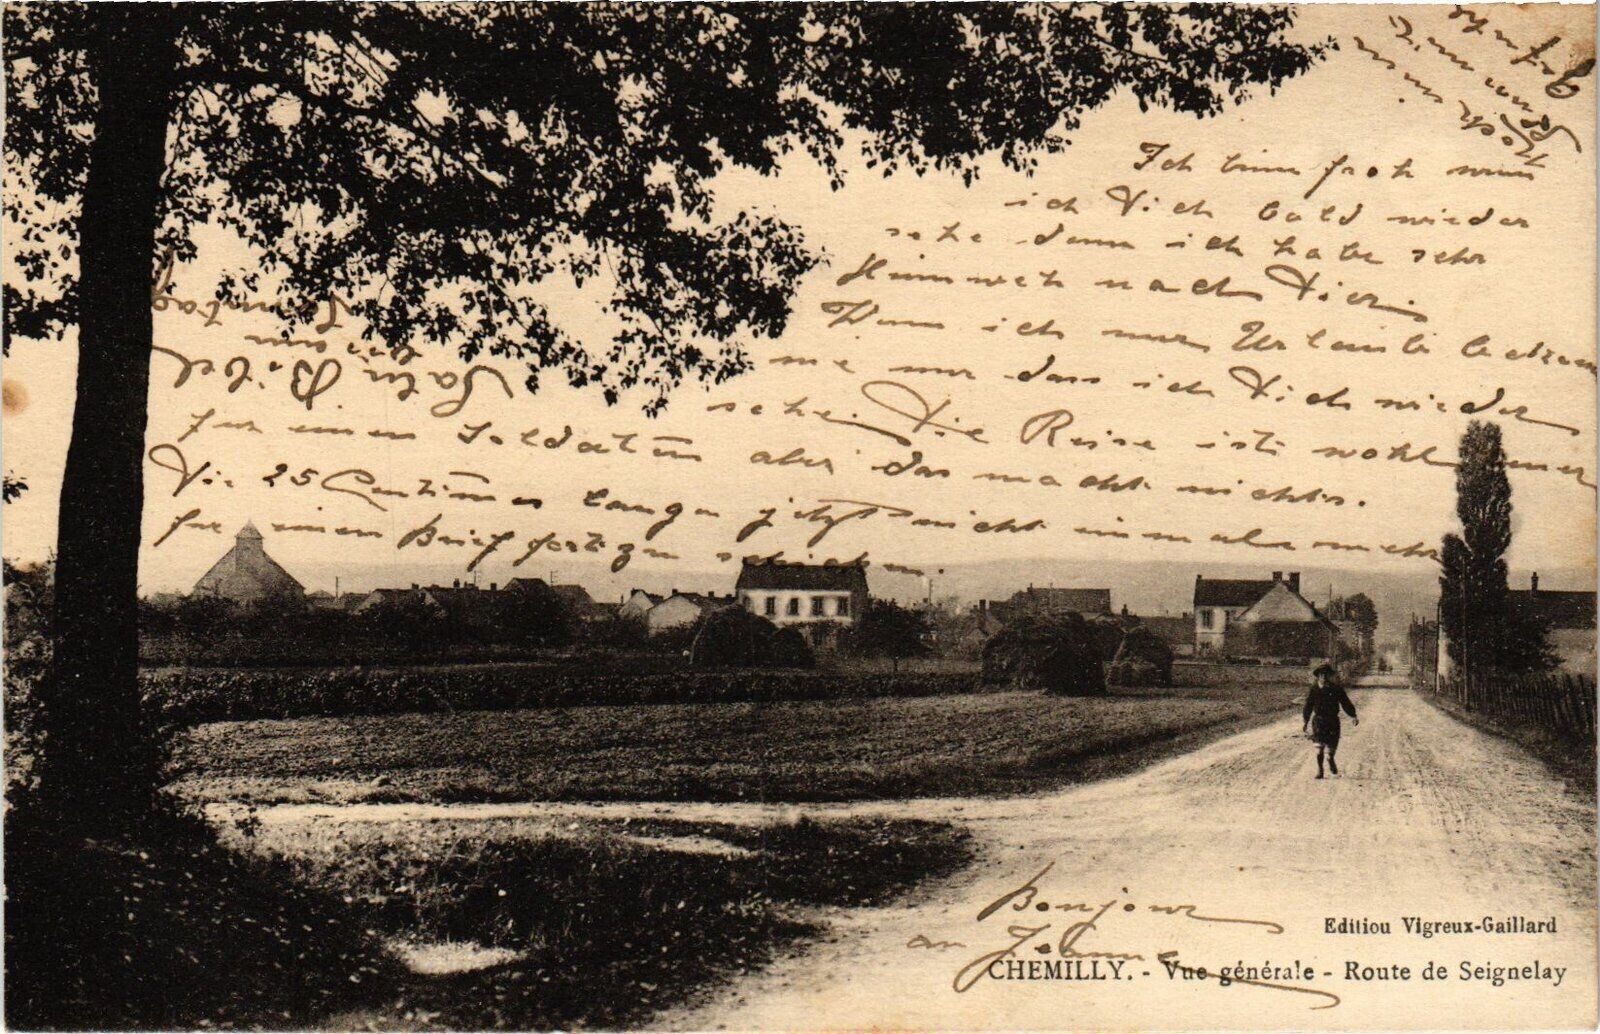 Ich binn froh wenn
ich Dich bald wieder
sehe denn ich habe sehr
Heimweh nach Dier.
Wenn ich nur Urlaub bekomme
nur dass ich Dich wieder
sehe. Die Reise ist wohl teuer
fur einen Soldaten aber das macht nichts.
Die 25 Centimes langen jetzt nicht einmal mehr
fur einen Brief fort zu schicken.
am
Sonntag
Bonjour
an Jeanne
Edition Vigreux-Gaillard
CHEMILLY. - Vue générale - Route de Seignelay